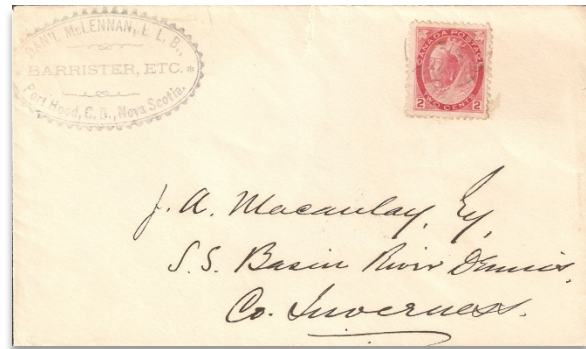 DAN'L McLENNAN, L L. B.,
BARRISTER, ETC. *
Port Hood, C. B., Nova Scotia.
CANADA POSTAGE
2 TWO CENTS 2
J. A. Macaulay, Esq,
S. S. Basin River Dennis,
Co. Inverness.